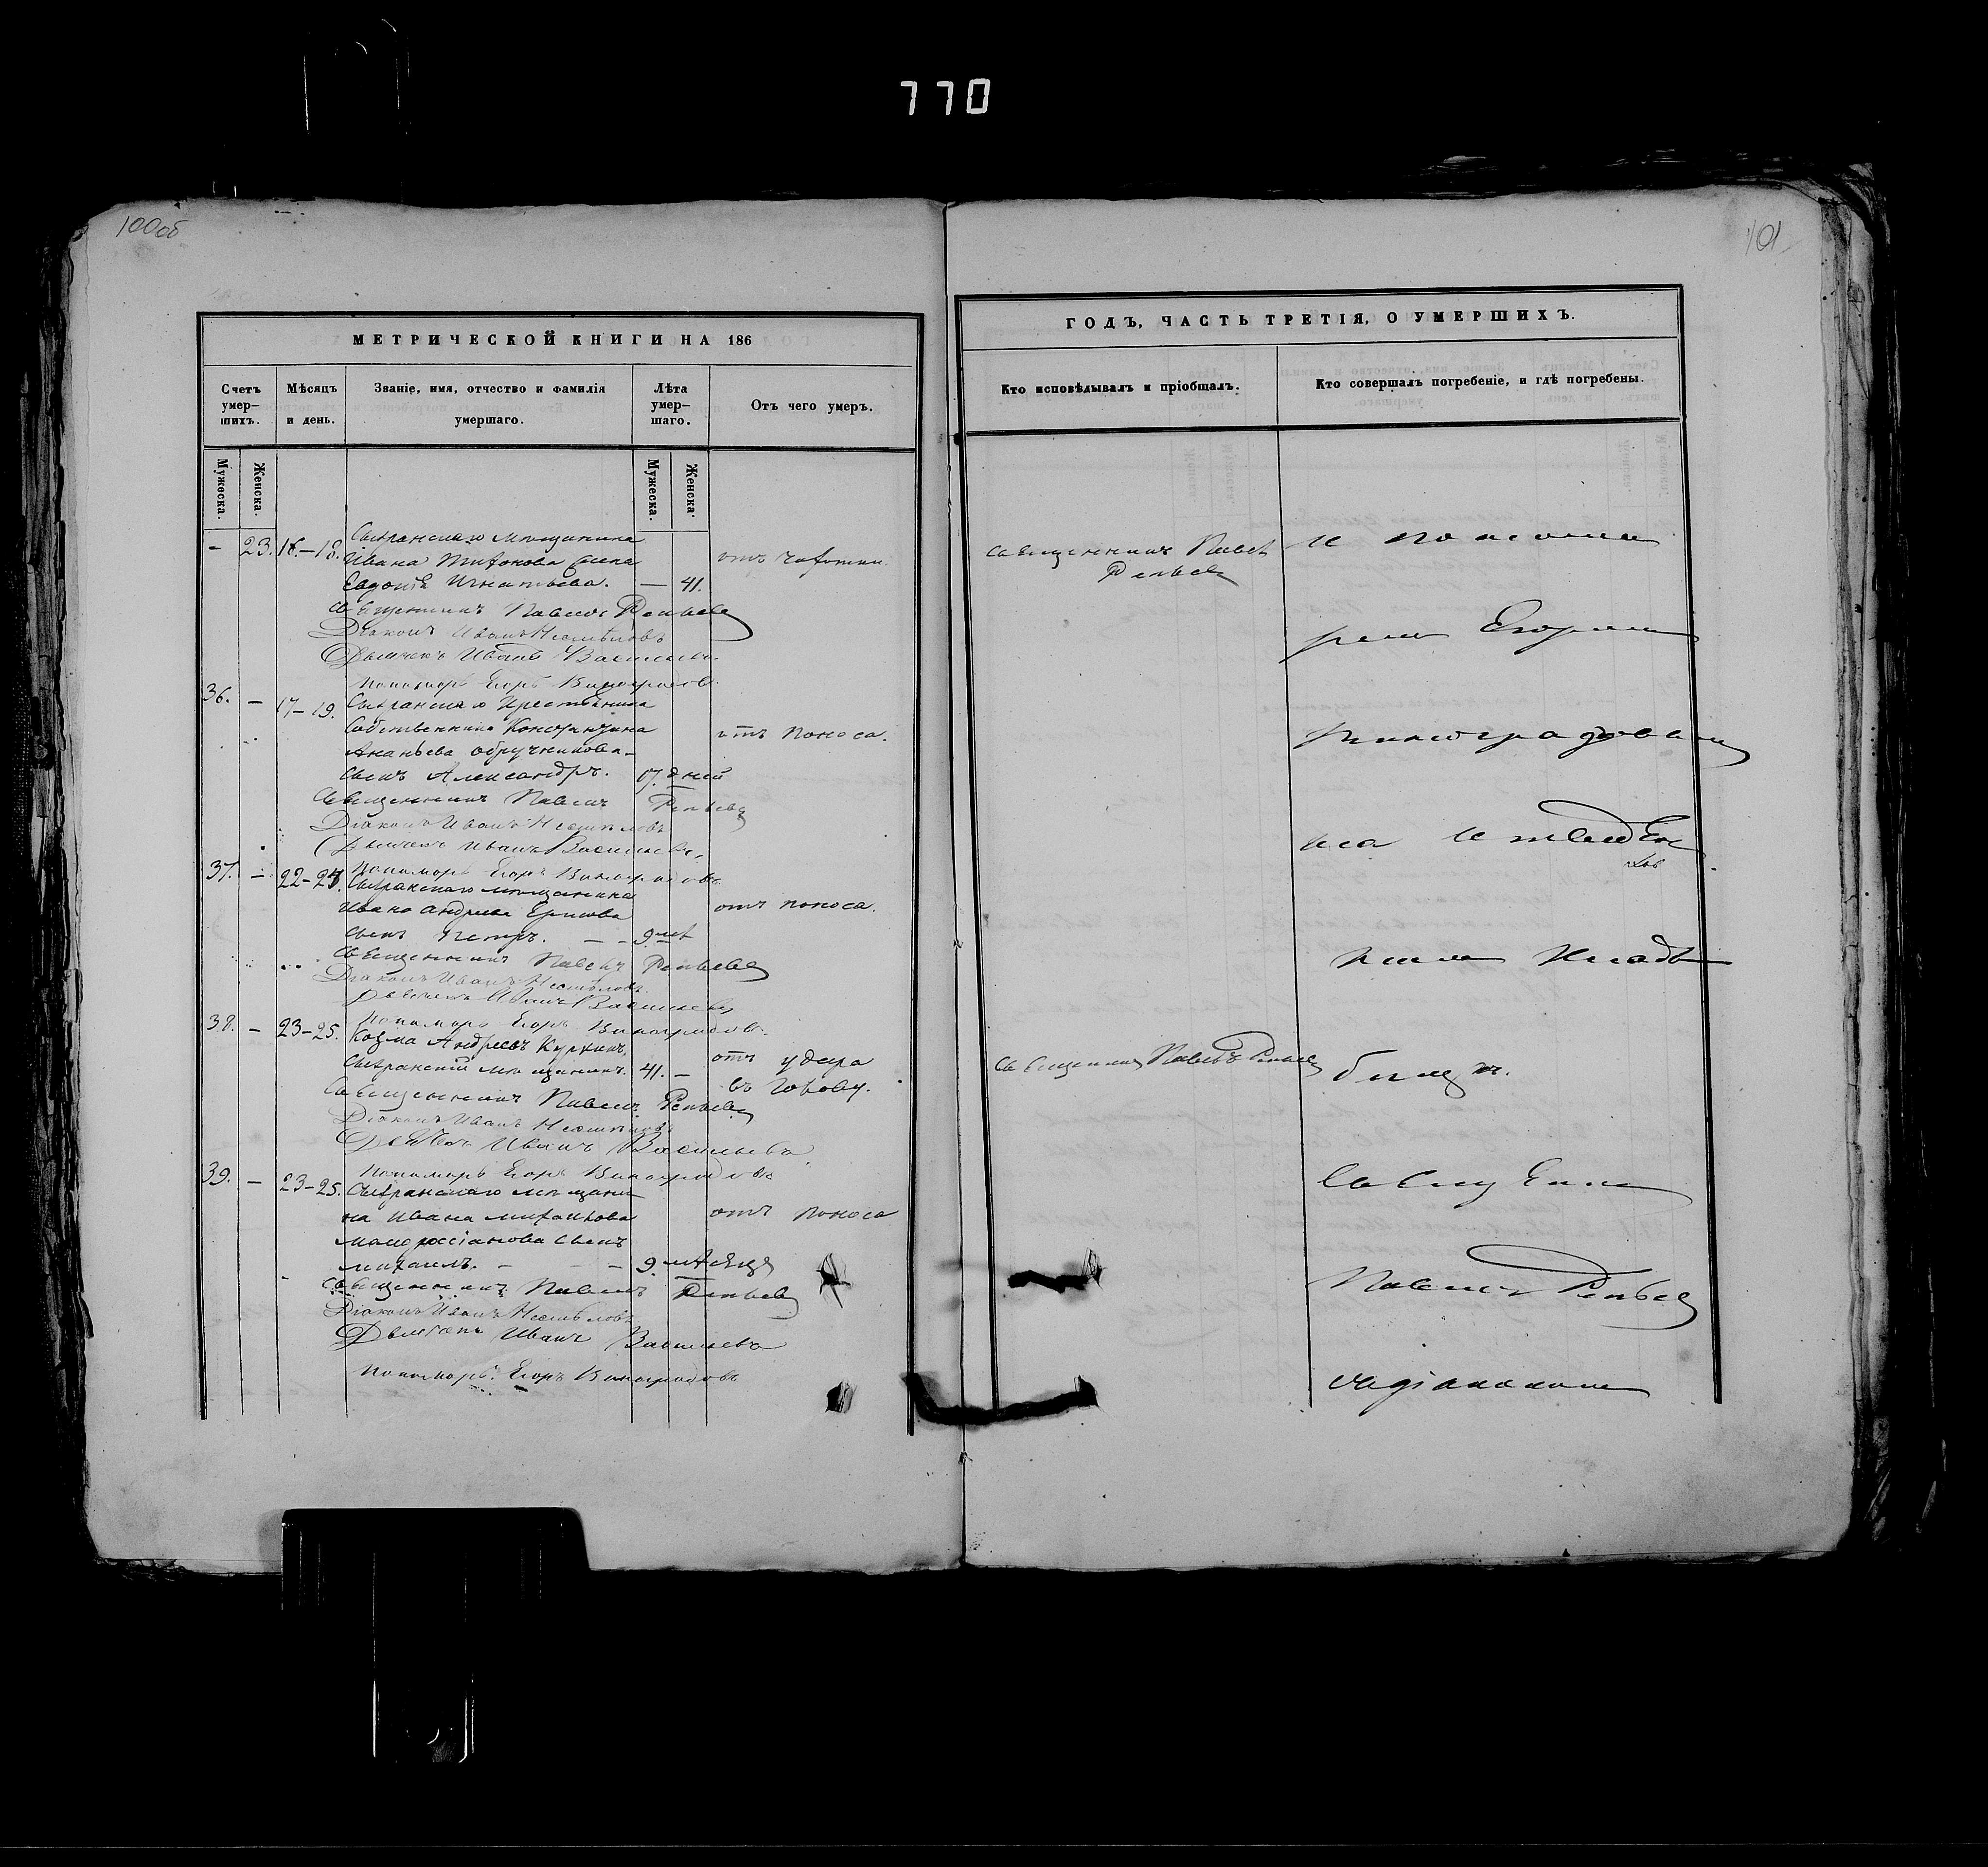 770
100об
101
МЕТРИЧЕСКОЙ КНИГИ НА 186
Счетъ умер-шихъ.
Мѣсяцъ и день.
Званіе, имя, отчество и фамилія умершаго.
Лѣта умер-шаго.
Отъ чего умеръ.
Мужеска.
Женска.
Мужеска.
Женска.
- 23. 16.-18. Сызранскаго мѣщанина
Ивана Тихонова жена отъ чахотки.
Евдокія Игнатьева. — 41.
Священникъ Павелъ Репьевъ
Діаконъ Иванъ
Дьячекъ Иванъ Васильевъ.
Пономарь Егоръ Виноградовъ.
36. - 17-19. Сызранскаго Крестьянина
Собственника Константина отъ поноса.
Ананьева Обручникова
сынъ Александръ. 17. дней
Священникъ Павелъ Репьевъ
Діаконъ Иванъ
Дьячекъ Иванъ Васильевъ.
Пономарь Егоръ Виноградовъ
37. - 22-24. Сызранскаго мѣщанина
Ивана Андреева отъ поноса.
сынъ Петръ. - - 9.
Священникъ Павелъ Репьевъ
Діаконъ Иванъ
Дьячекъ Иванъ Васильевъ
Пономарь Егоръ Виноградовъ.
38. - 23-25. Козма Андреевъ Куркинъ, отъ удара
Сызранскій мѣщанинъ. 41. - въ голову.
Священникъ Павелъ Репьевъ
Діаконъ Иванъ
Дьячекъ Иванъ Васильевъ
Пономарь Егоръ Виноградовъ
39. - 23-25. Сызранскаго мѣщани-
на Ивана Михайлова отъ поноса
Малороссіянова сынъ
Михаилъ. - - - 9. мѣсяцъ
Священникъ Павелъ Репьевъ
Діаконъ Иванъ
Дьячекъ Иванъ Васильевъ
Пономарь Егоръ Виноградовъ
ГОДЪ, ЧАСТЬ ТРЕТІЯ, О УМЕРШИХЪ.
Кто исповѣдывалъ и пріобщалъ.
Кто совершалъ погребеніе, и гдѣ погребены.
Священникъ Павелъ
Репьевъ
и пономаремъ
Егоромъ
Виноградовымъ
на
Клад-
бищѣ.
Священникъ Павелъ Репьевъ
Священникъ
Павелъ Репьевъ
съ діакономъ